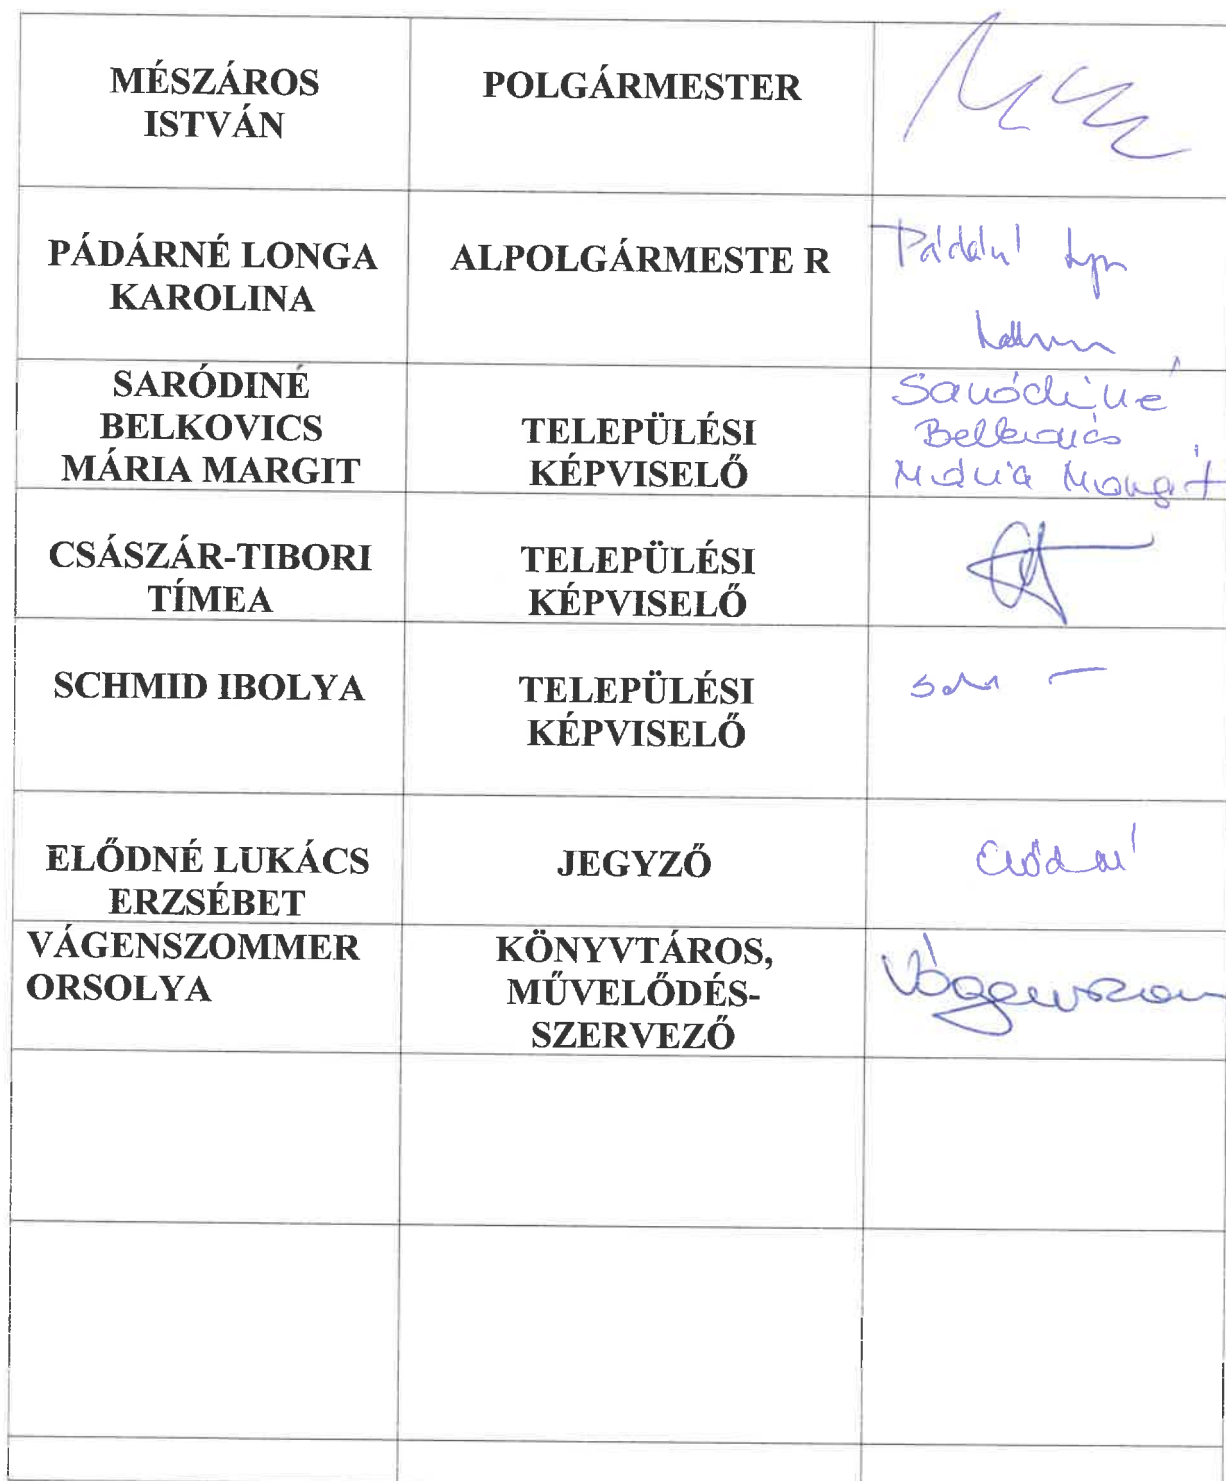 MÉSZÁROS
ISTVÁN
POLGÁRMESTER
PÁDÁRNÉ LONGA
KAROLINA
ALPOLGÁRMESTE R
SARÓDINÉ
BELKOVICS
MÁRIA MARGIT
TELEPÜLÉSI
KÉPVISELŐ
Saródiné
Belkovics
Mária Margit
CSÁSZÁR-TIBORI
TÍMEA
TELEPÜLÉSI
KÉPVISELŐ
SCHMID IBOLYA
TELEPÜLÉSI
KÉPVISELŐ
ELŐDNÉ LUKÁCS
ERZSÉBET
JEGYZŐ
Elődné
VÁGENSZOMMER
ORSOLYA
KÖNYVTÁROS,
MŰVELŐDÉS-
SZERVEZŐ